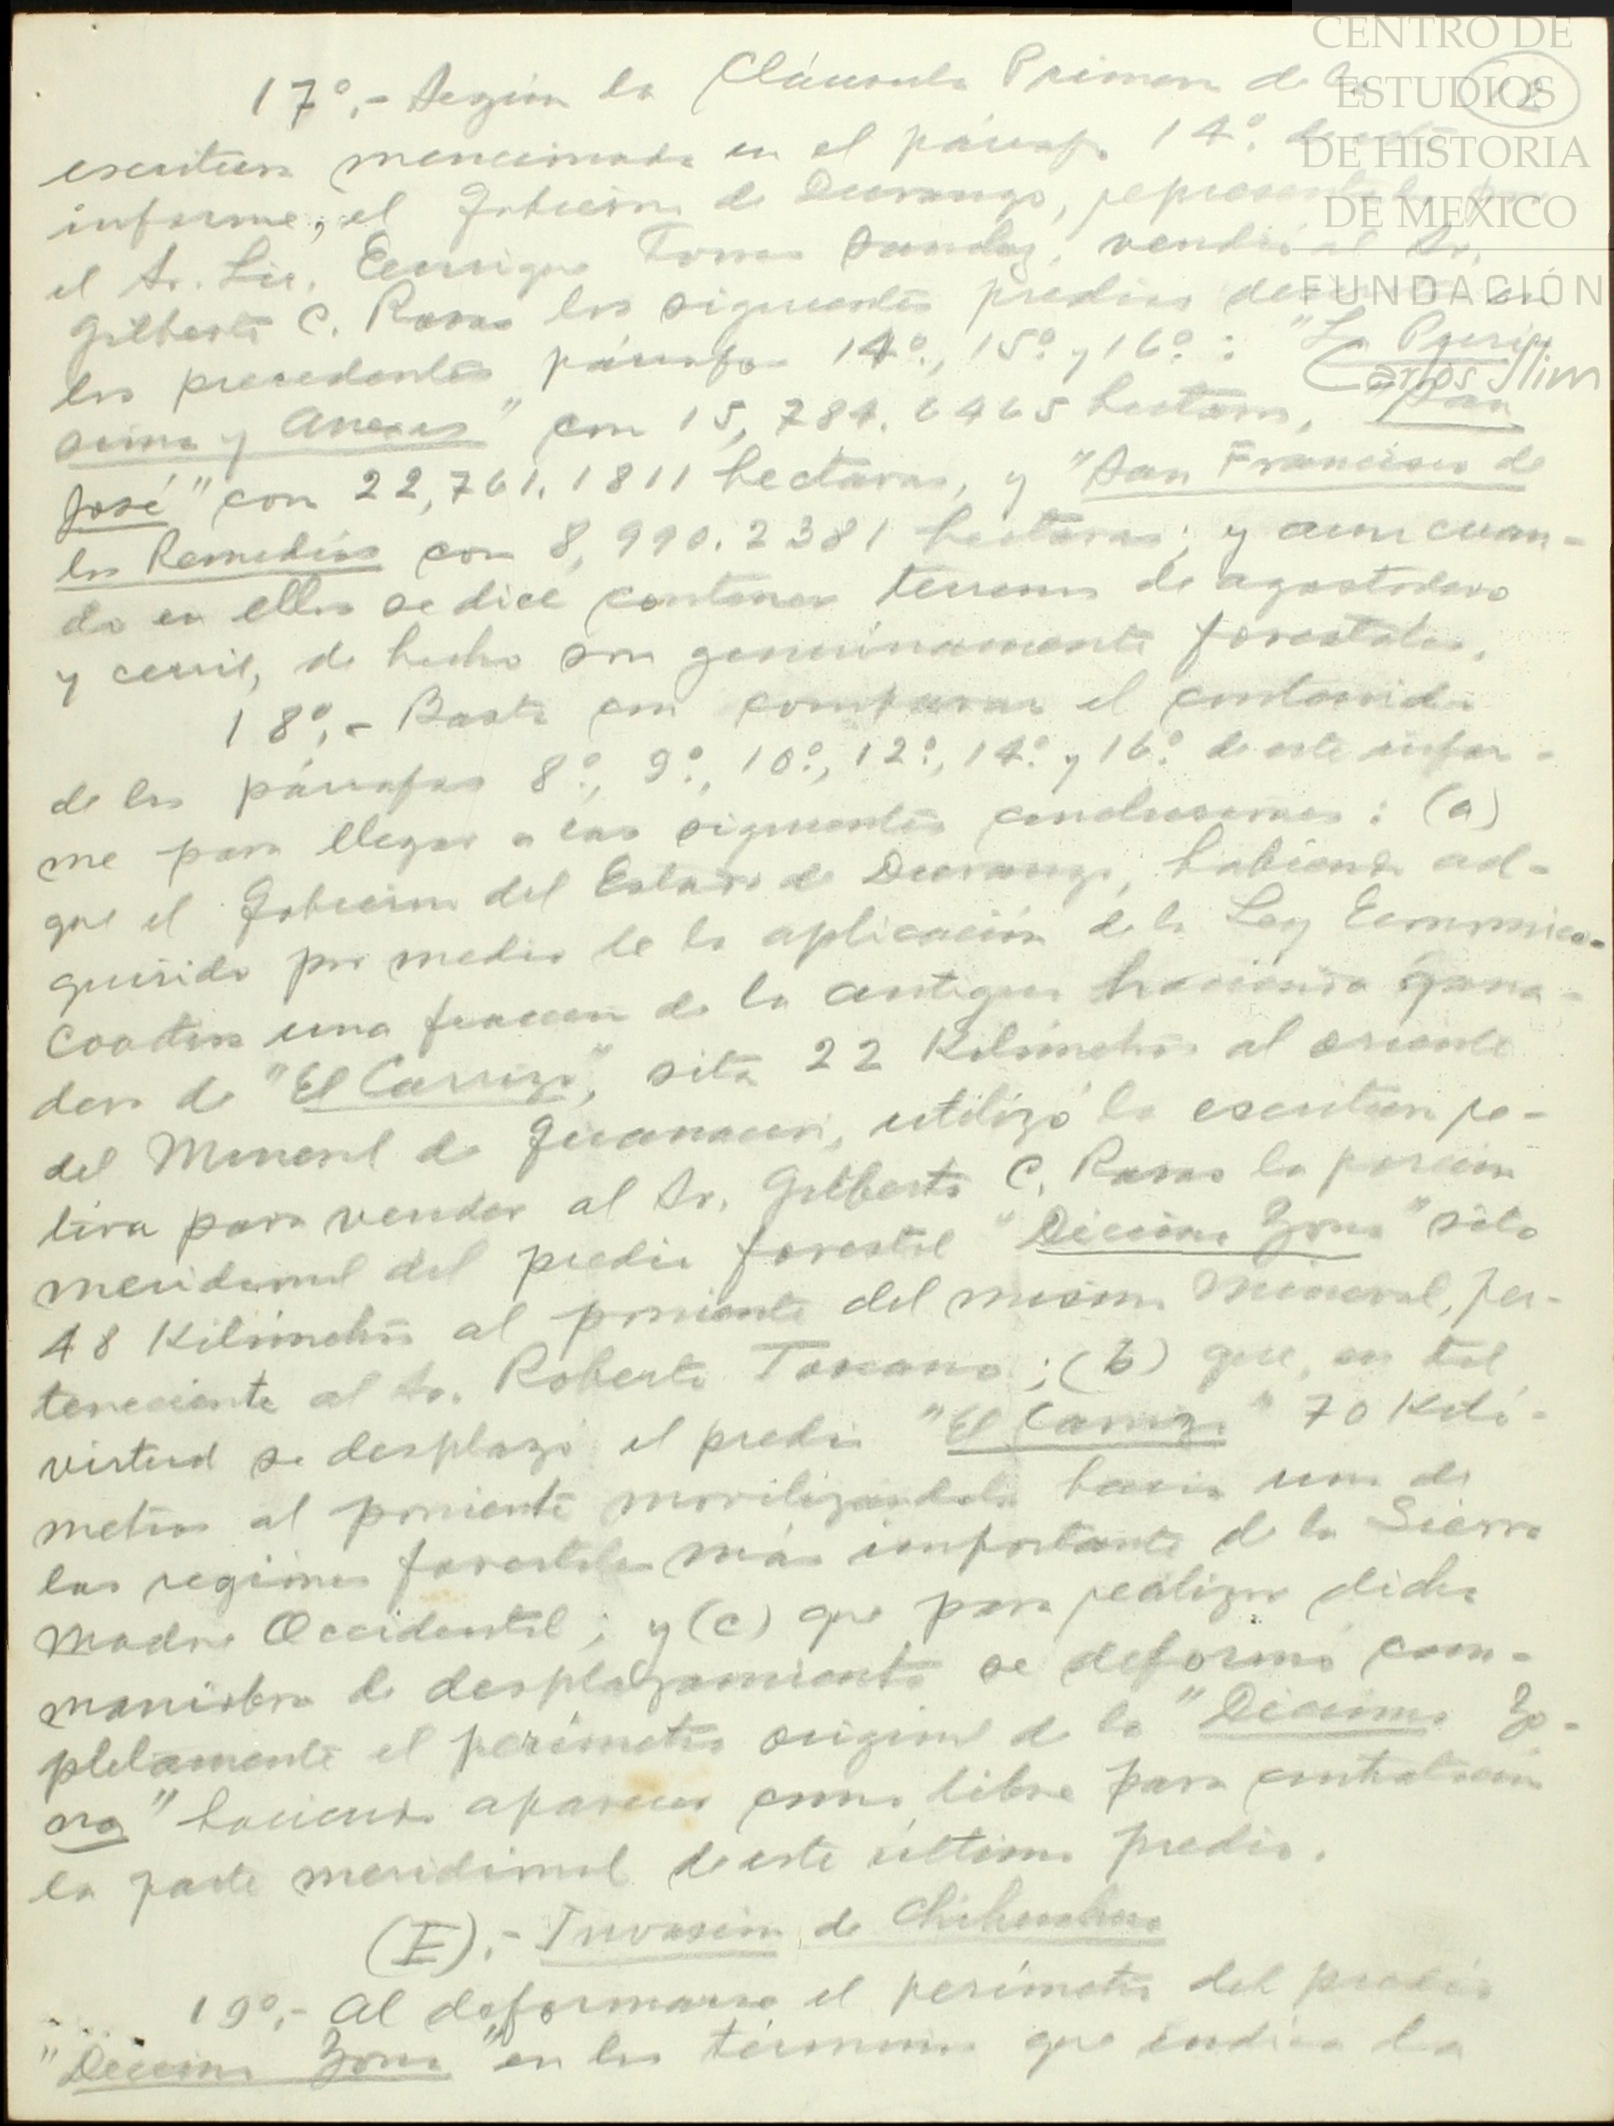 CENTRO DE
ESTUDIOS
DE HISTORIA
DE MEXICO
FUNDACIÓN
Carlos Slim
17º.- Según la Cláusula Primera de la
escritura mencionada en el párrafo 14º. de este
informe, el Gobierno de Durango, representado por
el Sr. Lic. Enrique Torres Sandez, vendió al Sr.
Gilberto C. Rosas los siguientes predios descritos en
los precedentes párrafos 14º., 15º. y 16º.: "La Purí-
sima y Anexas" con 15,784.6465 hectaras, "San
José" con 22,761.1811 hectaras, y "San Francisco de
los Remedios con 8,990.2381 hectaras; y aun cuan-
do en ellos se dice contener terrenos de agostadero
y cerril, de hecho son genuinamente forestales.
18º.- Basta con comparar el contenido
de los párrafos 8º., 9º., 10º., 12º., 14º. y 16º. de este infor-
me para llegar a las siguientes conclusiones: (a)
que el Gobierno del Estado de Durango, habiendo ad-
quirido por medio de la aplicación de la Ley Económico-
Coactiva una fraccion de la antigua hacienda gana-
dera de "El Carrizo", sita 22 Kilómetros al oriente
del Mineral de Guanaceví, utilizó la escritura re-
tiva para vender al Sr. Gilberto C. Rosas la porcion
meridional del predio forestal "Décima Zona" sito
48 Kilómetros al poniente del mismo Mineral, per-
teneciente al Sr. Roberto Toscano; (b) que, en tal
virtud se desplazó el predio "El Carrizo" 70 Kiló-
metros al poniente movilizandolo hacia una de
las regiones forestales más importante de la Sierra
Madre Occidental; y (c) que para realizar dicha
maniobra de desplazamiento se deformó com-
pletamente el perímetro original de la "Décima Zo-
na" haciendo aparecer como libre para contratación
la parte meridional de este último predio.
(E).- Invasión de Chihuahua
19º.- Al deformarse el perímetro del predio
"Décima Zona" en los términos que indica la